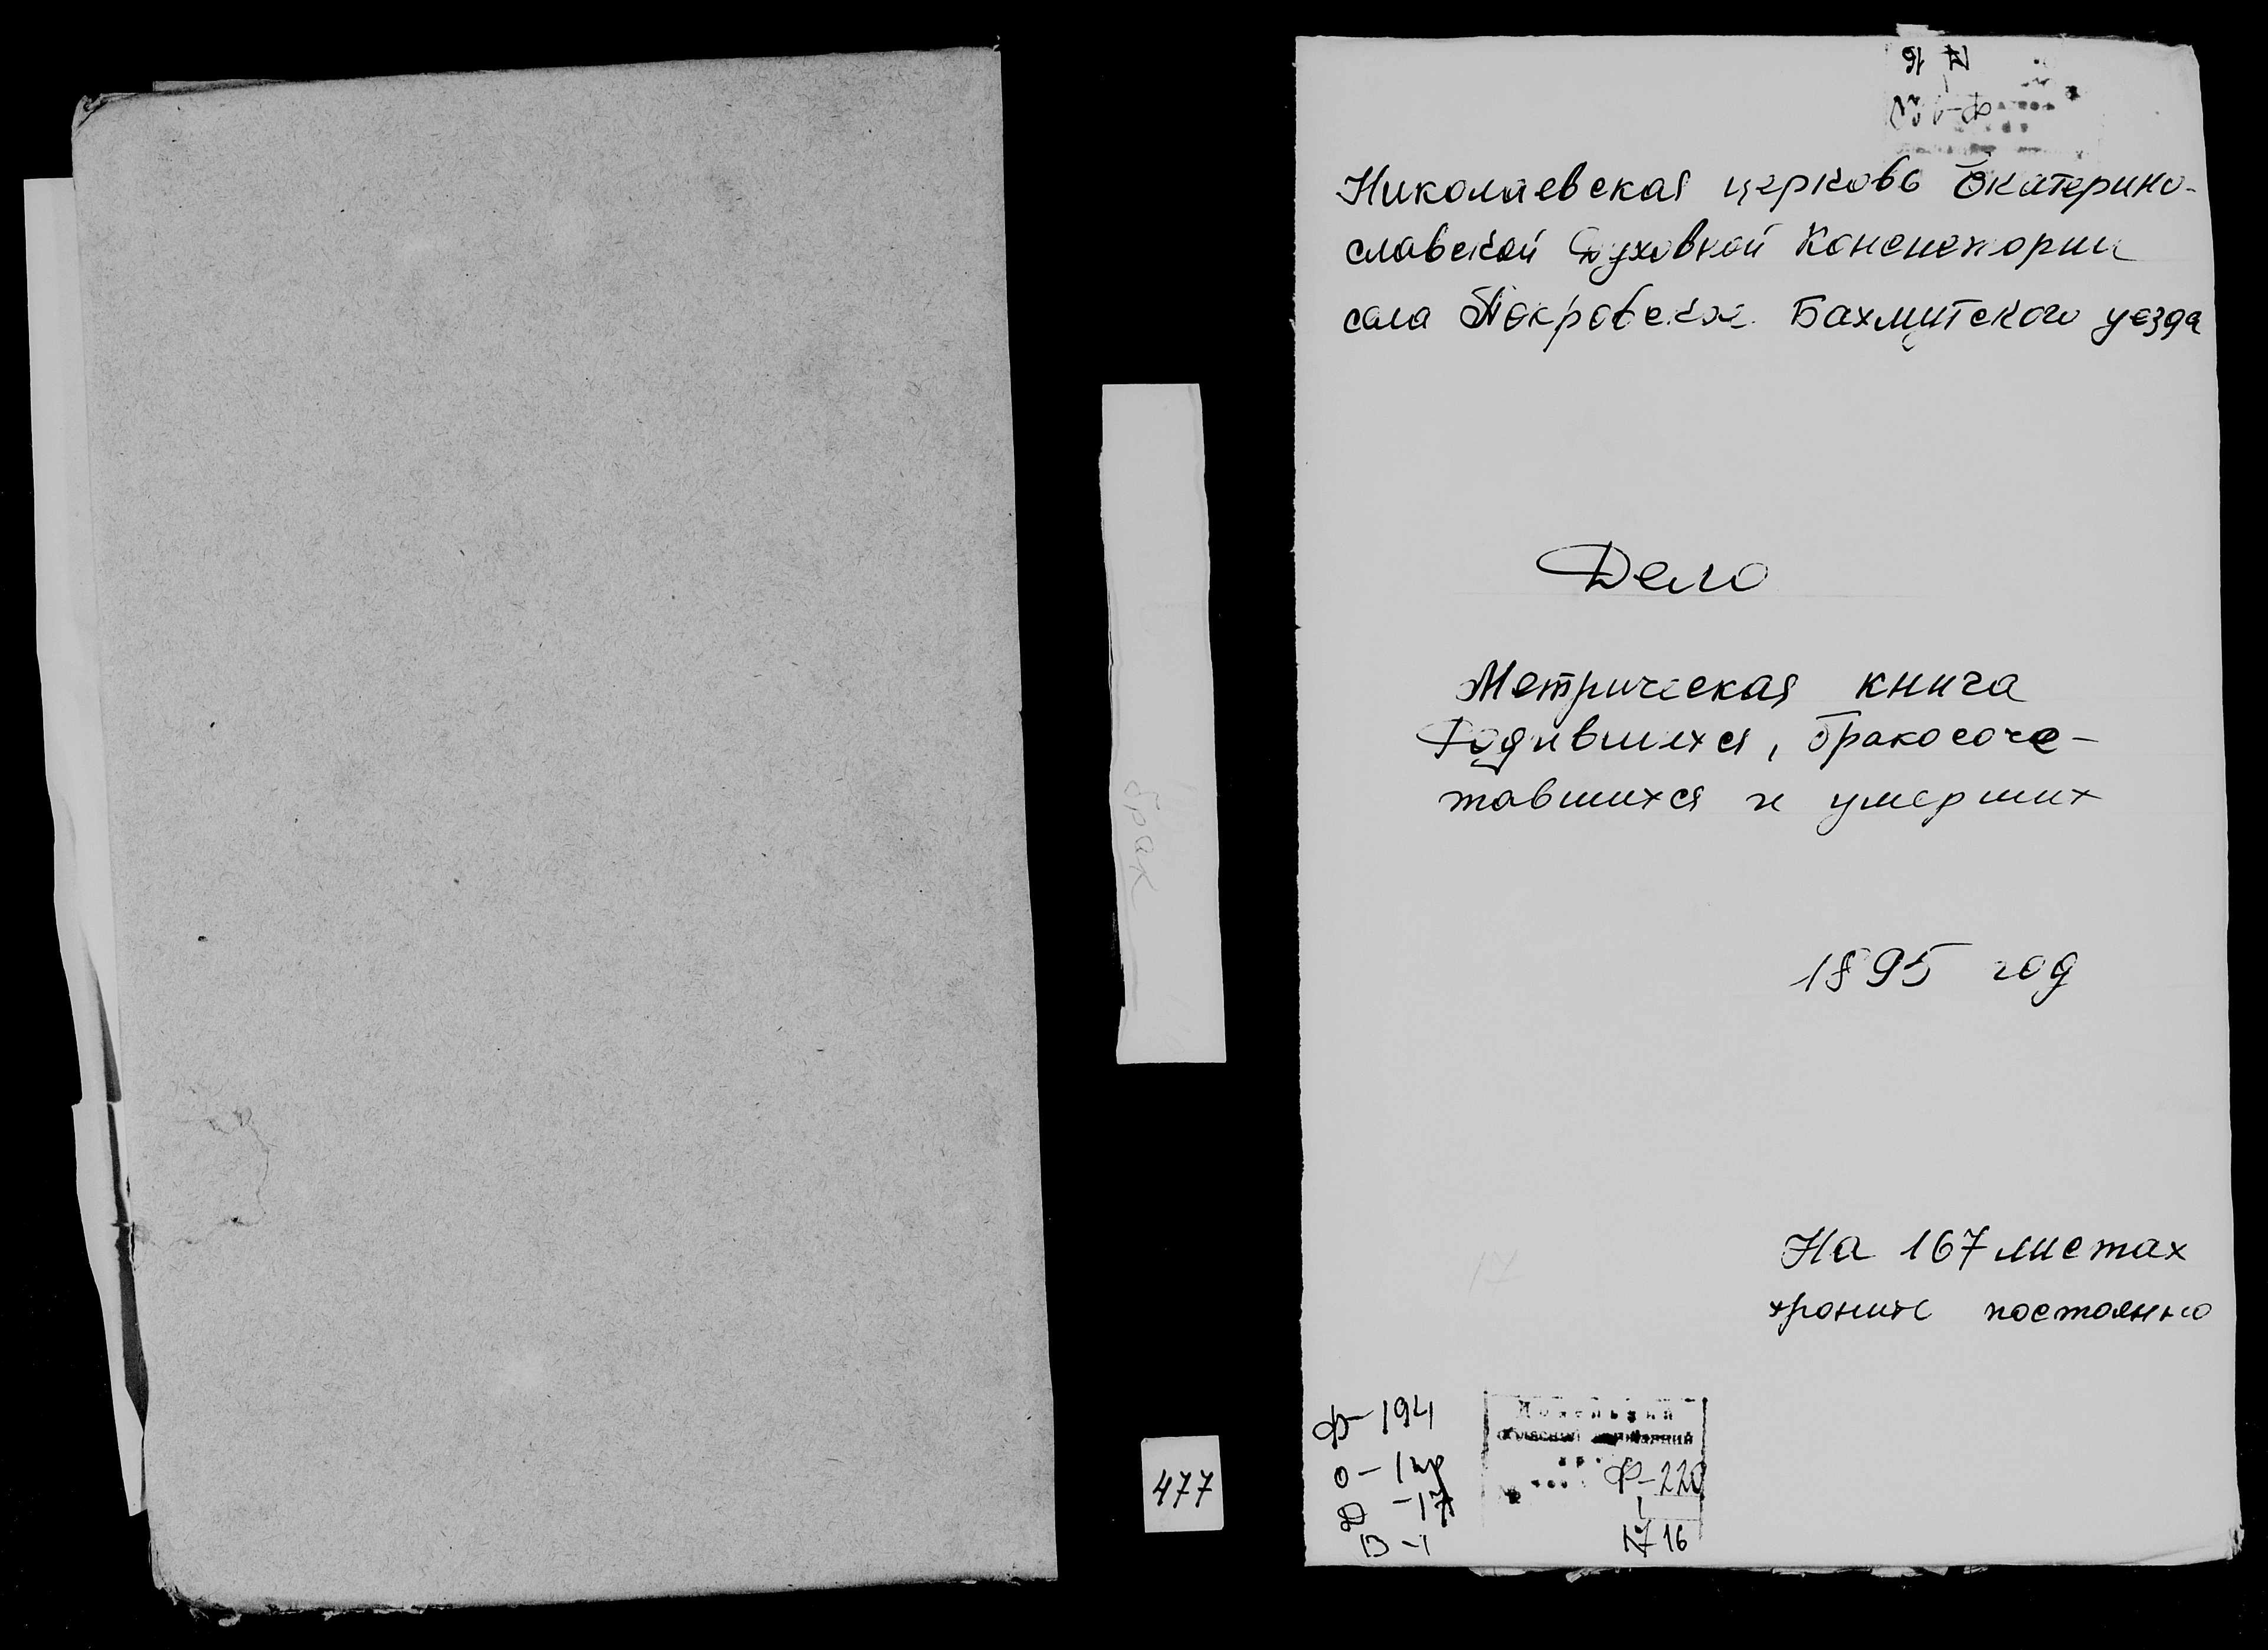 брак
477
№ 16
Николаевская церковь Екатерино-
славской Духовной Консистории
села Покровское Бахмутского уезда
Дело
Метрическая книга
Родившихся, бракосоче-
тавшихся и умерших
1895 год
На 167 листах
хранить постоянно
Ф-194
О-1пр
Д-17
В-1
17
Ф-220
1
№ 16